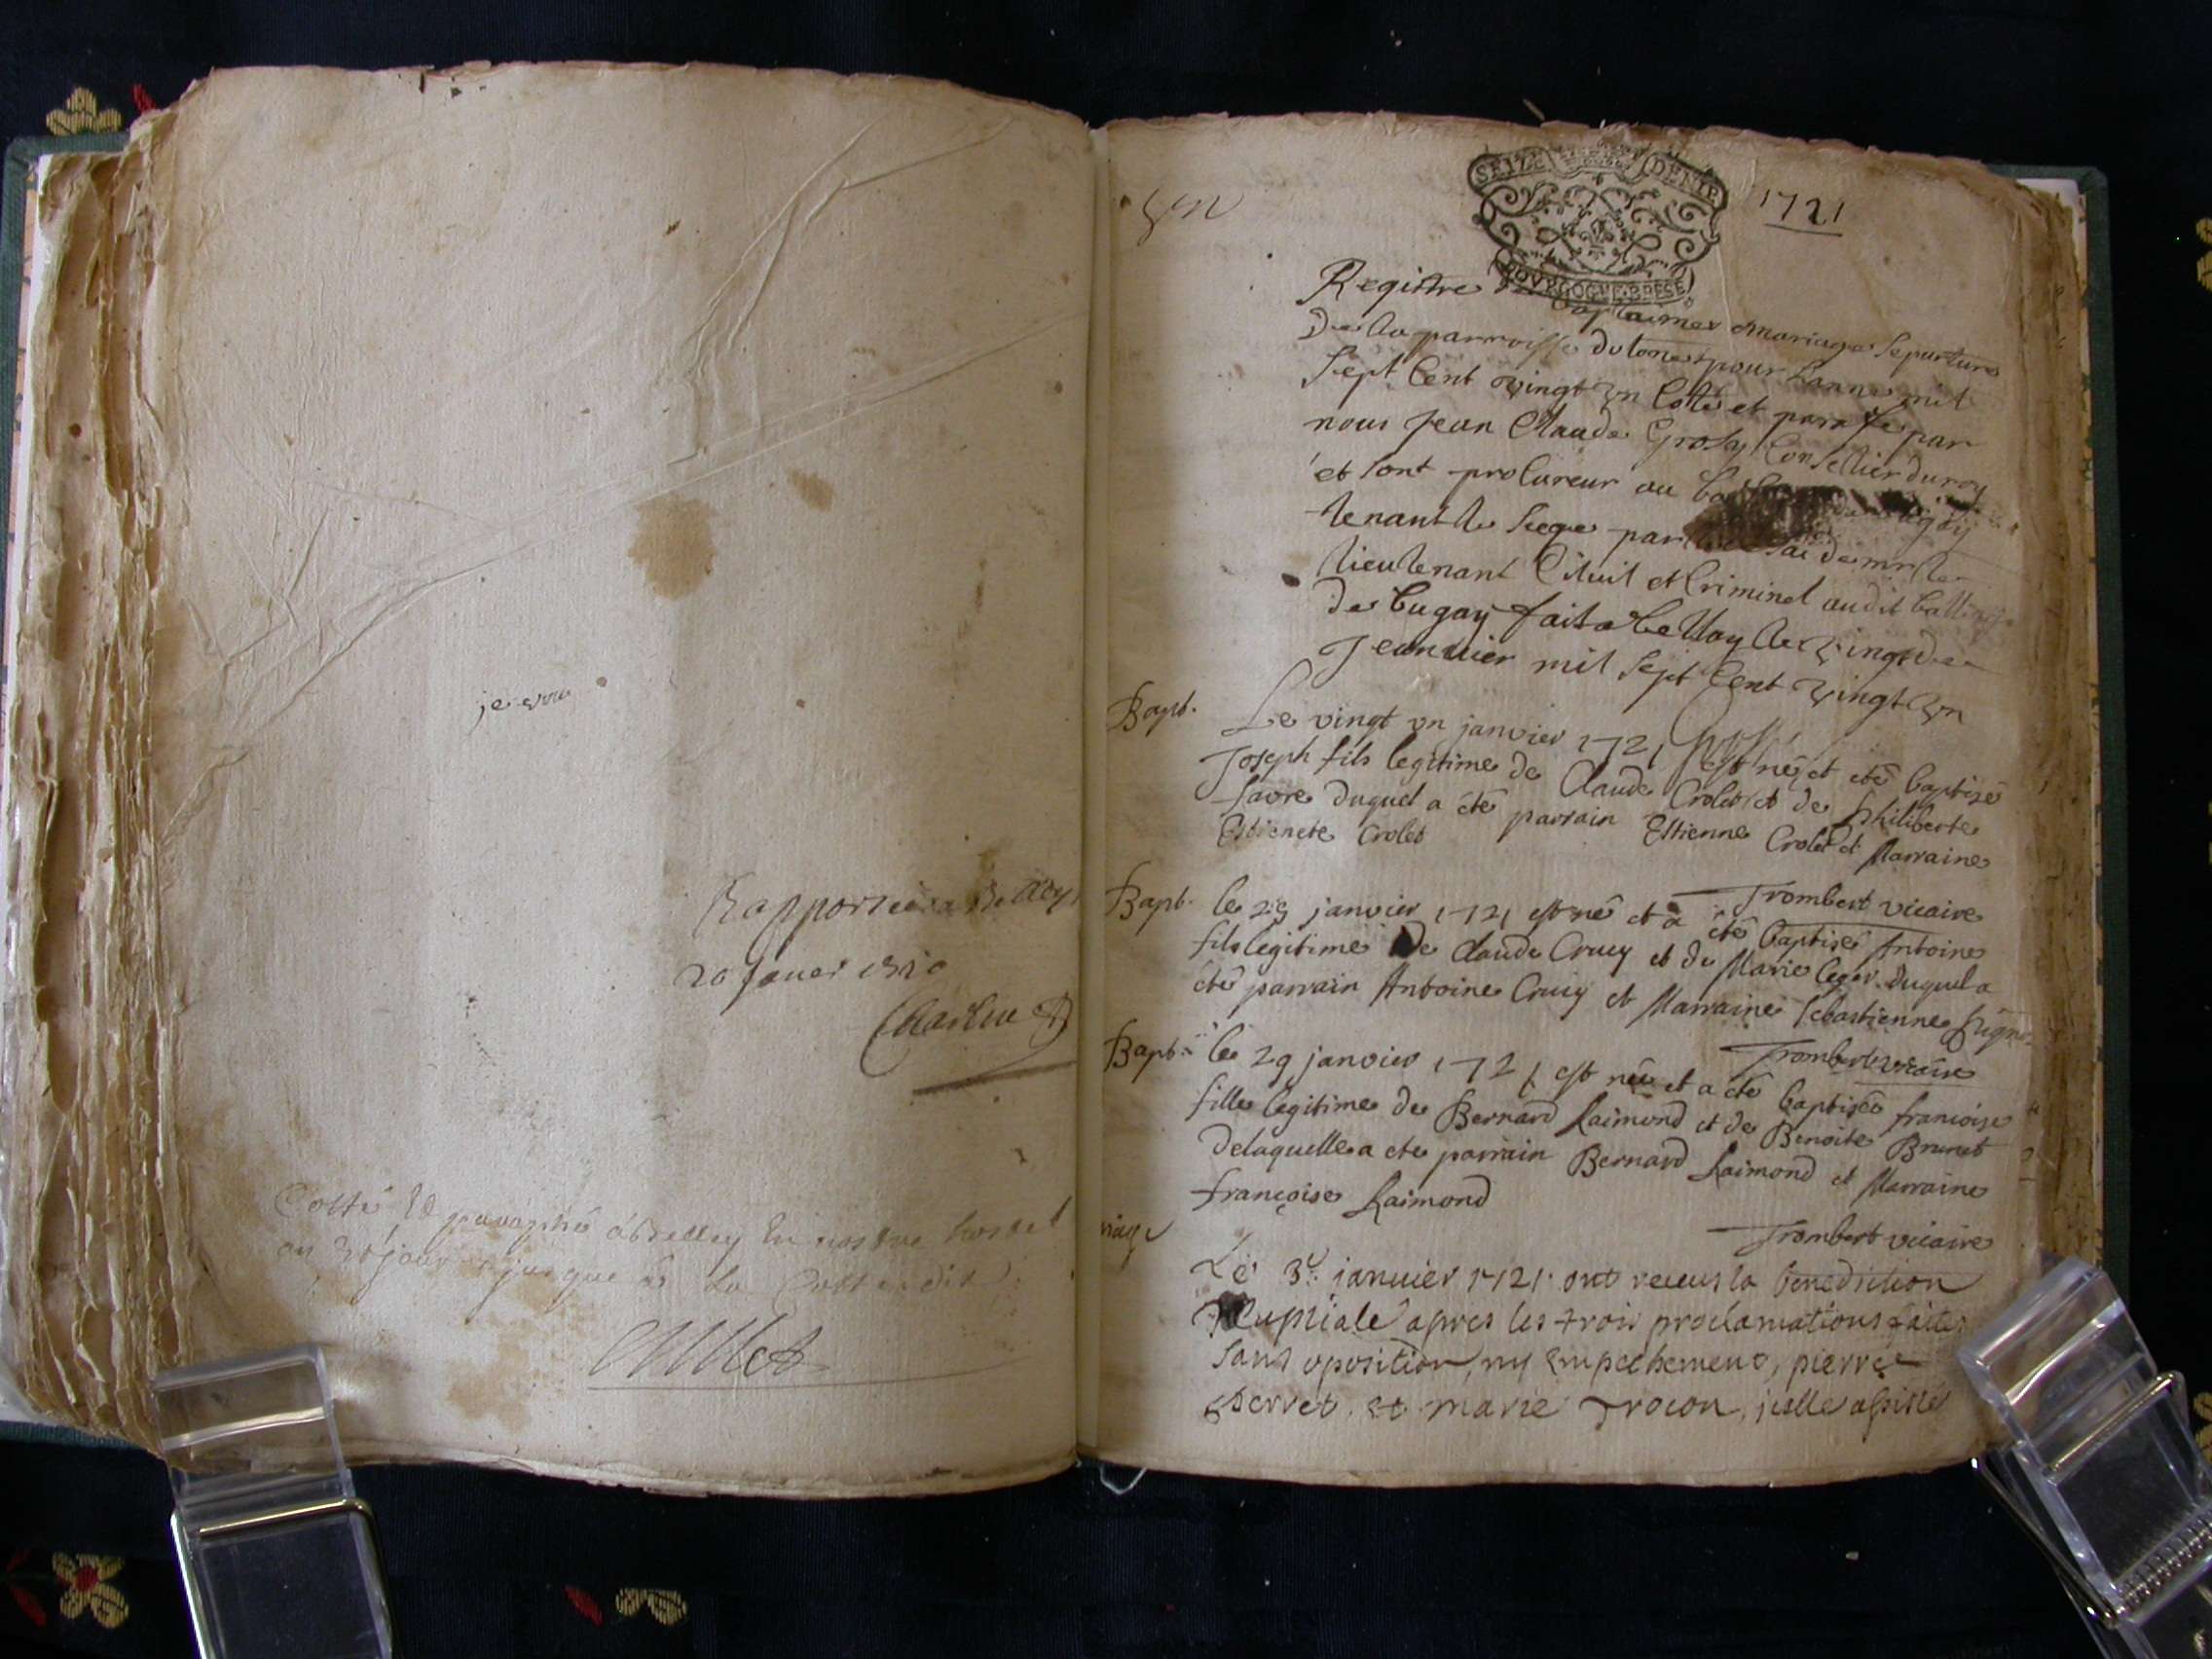 je
Rapporté a Belley
20 janier
Cotté et paraphé a Belley en nostre hostel
au jusque a la
SEIZE DENIE
BOVRGOGNE·BRESE
vn
1721
Registre baptaimes mariages sepurture
De la parroisse du pour Lannee mil
Sept Cent vingt vn Cotté et parafe par
nous Jean Claude Grosy Consellier du roy
et sont procureur au
tenant le siege par de mr le
lieutenant Ciluil et Criminel audit balliage
de bugay fait a belley le vingt de
Jeanuier mil Sept Cent vingt vn
Bapt. Le vingt vn janvier 1721 est né et eté baptisé
Joseph fils legitime de Claude Crolet et de Philiberte
favre duquel a été parrain Estienne Crolet et Marraine
Estienete Crolet
Trombert vicaire
Bapt. le 29 janvier 1721 est né et a été baptisé Antoine
fils legitime de Claude Crucy et de Marie leger duquel a
été parrain Antoine Crucy et Marraine Sebastienne
Trombert vicaire
Bapt. le 29 janvier 1721 est née et a été baptisée françoise
fille legitime de Bernard Raimond et de Benoite Brunet
delaquelle a ete parrain Bernard Raimond et Marraine
françoise Raimond
Trombert vicaire
riage Le 3e janvier 1721 ont receus la benediction
Nuptiale apres les trois proclamations faites
sans oposition, ny empechement, pierre
perret et marie Trocon, icelle assisté